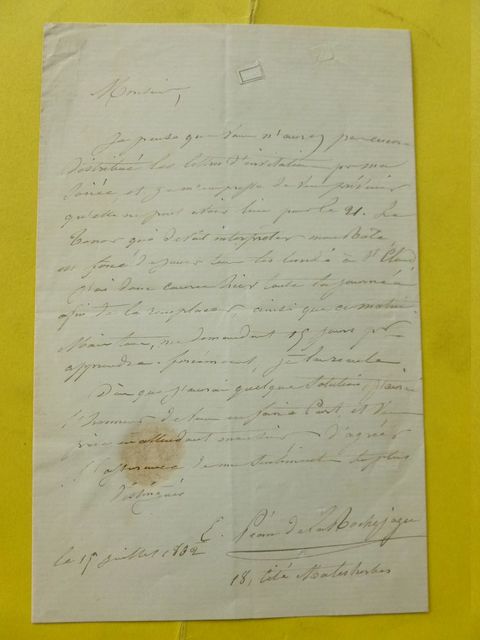 Monsieur,
Je pense que vous n'avez pas encore
distribué les lettres d'invitation pr ma
soirée, et je m'empresse de vous prévenir
qu'elle ne peut avoir lieu pour le 21. Le
Tenor qui devait interpréter mon
est forcé de jouer tous les lundis à St Cloud
J'ai donc couru hier toute la journée
afin de le remplacer ainsi que ce matin.
Mais tous, me demandant 15 jours pr
apprendre forcément, je la recule
Dès que j'aurai quelque solution, j'aurai
l'honneur de vous en faire Part et
prie en attendant monsieur d'agréer
l'assurance de mes sentiments les plus
distingués
E. Péan de la Rochejagu
le 19 juillet 1862
18, cité Malesherbes